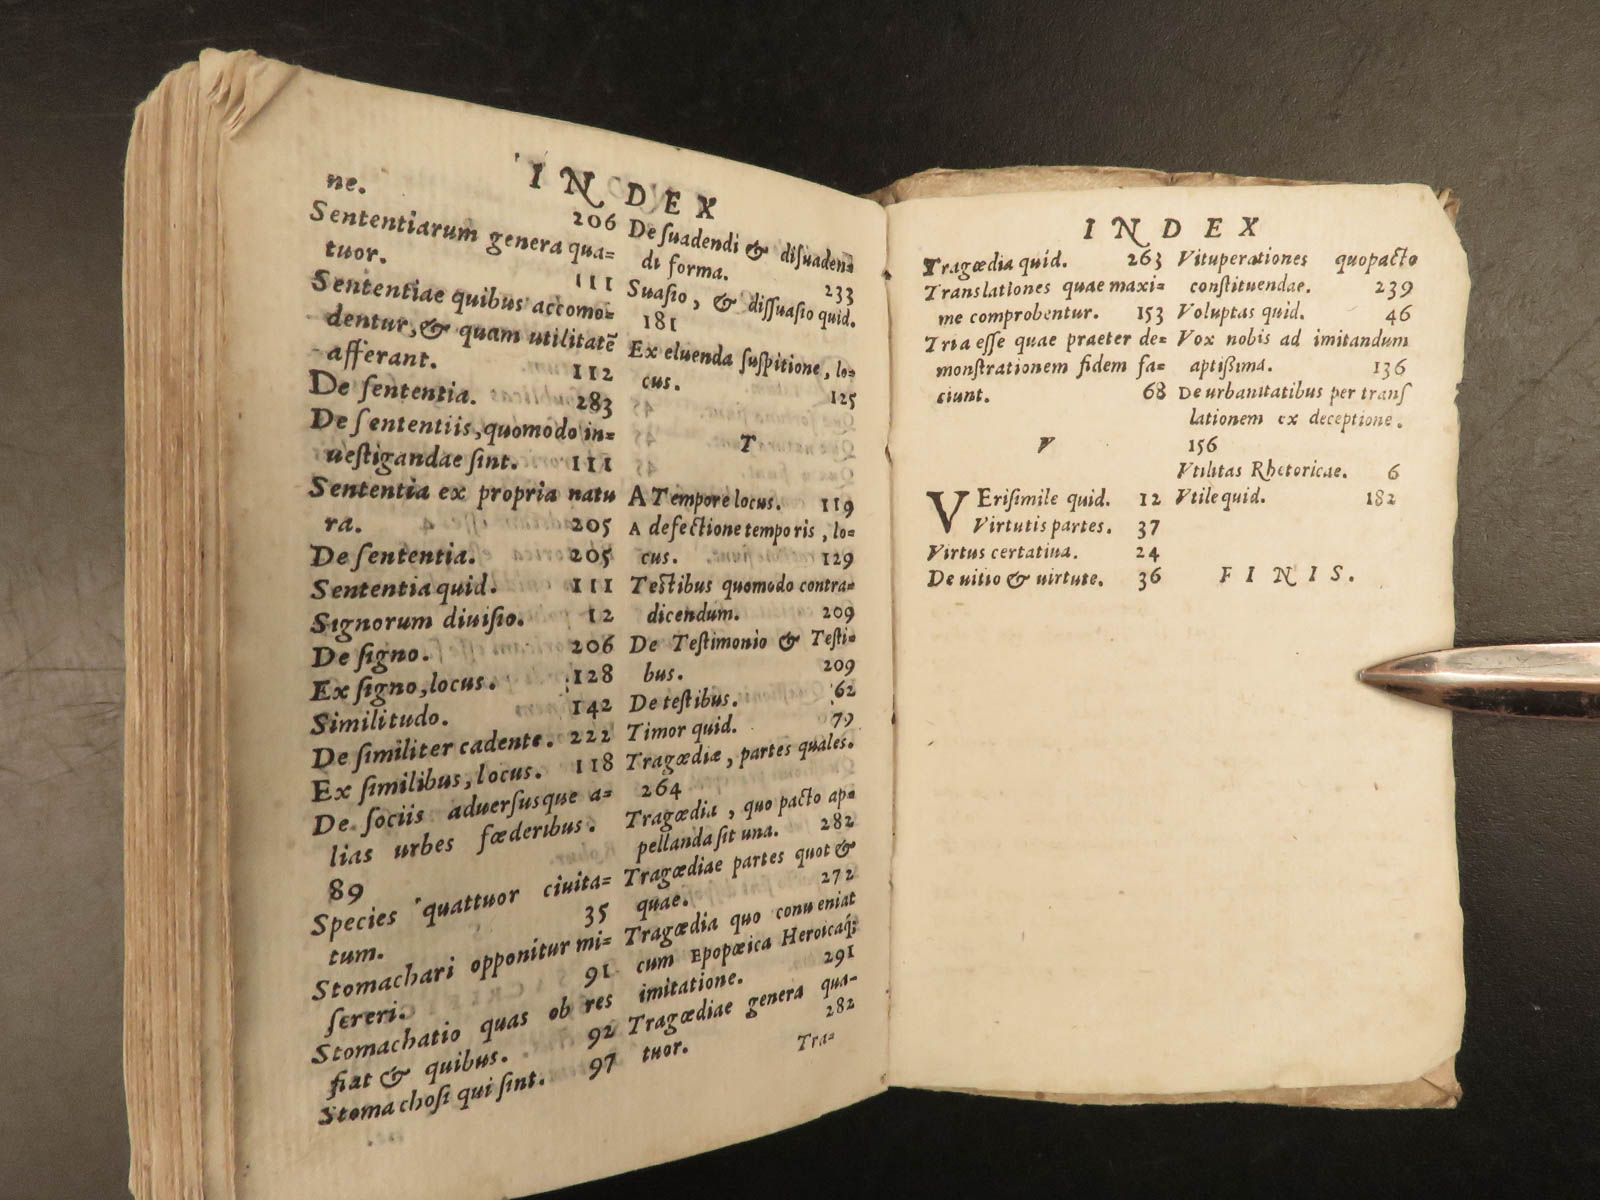 INDEX
ne. 206
Sententiarum genera qua=
tuor. 111
Sententiae quibus accomo=
dentur, & quam utilitatē
afferant. 112
De ſententia. 283
De ſententiis, quomodo in=
ueſtigandae ſint. 111
Sententia ex propria natu
ra. 205
De ſententia. 205
Sententia quid. 111
Signorum diuiſio. 12
De ſigno. 206
Ex ſigno, locus. 128
Similitudo. 142
De ſimiliter cadente. 222
Ex ſimilibus, locus. 118
De ſociis aduerſusque a=
lias urbes fœderibus.
89
Species quattuor ciuita=
tum. 35
Stomachari opponitur mi=
ſereri. 91
Stomachatio quas ob res
fiat & quibus. 92
Stomachoſi qui ſint. 97
De ſuadendi & diſuaden=
di forma. 233
Suaſio, & diſſuaſio quid.
181
Ex eluenda ſuſpitione, lo=
cus. 125
T
A Tempore locus. 119
A defectione temporis, lo=
cus. 129
Teſtibus quomodo contra=
dicendum. 209
De Teſtimonio & Teſti=
bus. 209
De teſtibus. 62
Timor quid. 79
Tragœdiæ, partes quales.
264
Tragœdia, quo pacto ap=
pellanda ſit una. 282
Tragœdiae partes quot &
quae. 272
Tragœdia quo conueniat
cum Epopœica Heroicaq́;
imitatione. 291
Tragœdiae genera qua=
tuor. 282
Tra=
INDEX
Tragœdia quid. 263
Translationes quae maxi=
me comprobentur. 153
Tria eſſe quae praeter de=
monſtrationem fidem fa=
ciunt. 68
V
VEriſimile quid. 12
Virtutis partes. 37
Virtus certatiua. 24
De uitio & uirtute. 36
Vituperationes quopacto
conſtituendae. 239
Voluptas quid. 46
Vox nobis ad imitandum
aptißima. 136
De urbanitatibus per tranſ
lationem ex deceptione.
156
Vtilitas Rhetoricae. 6
Vtile quid. 182
FINIS.